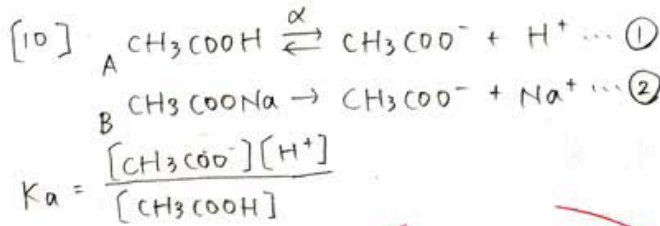 [10] A CH3COOH ⇄ α CH3COO⁻ + H⁺ … ①
B CH3COONa → CH3COO⁻ + Na⁺ … ②
Ka = [CH3COO⁻][H⁺] / [CH3COOH]